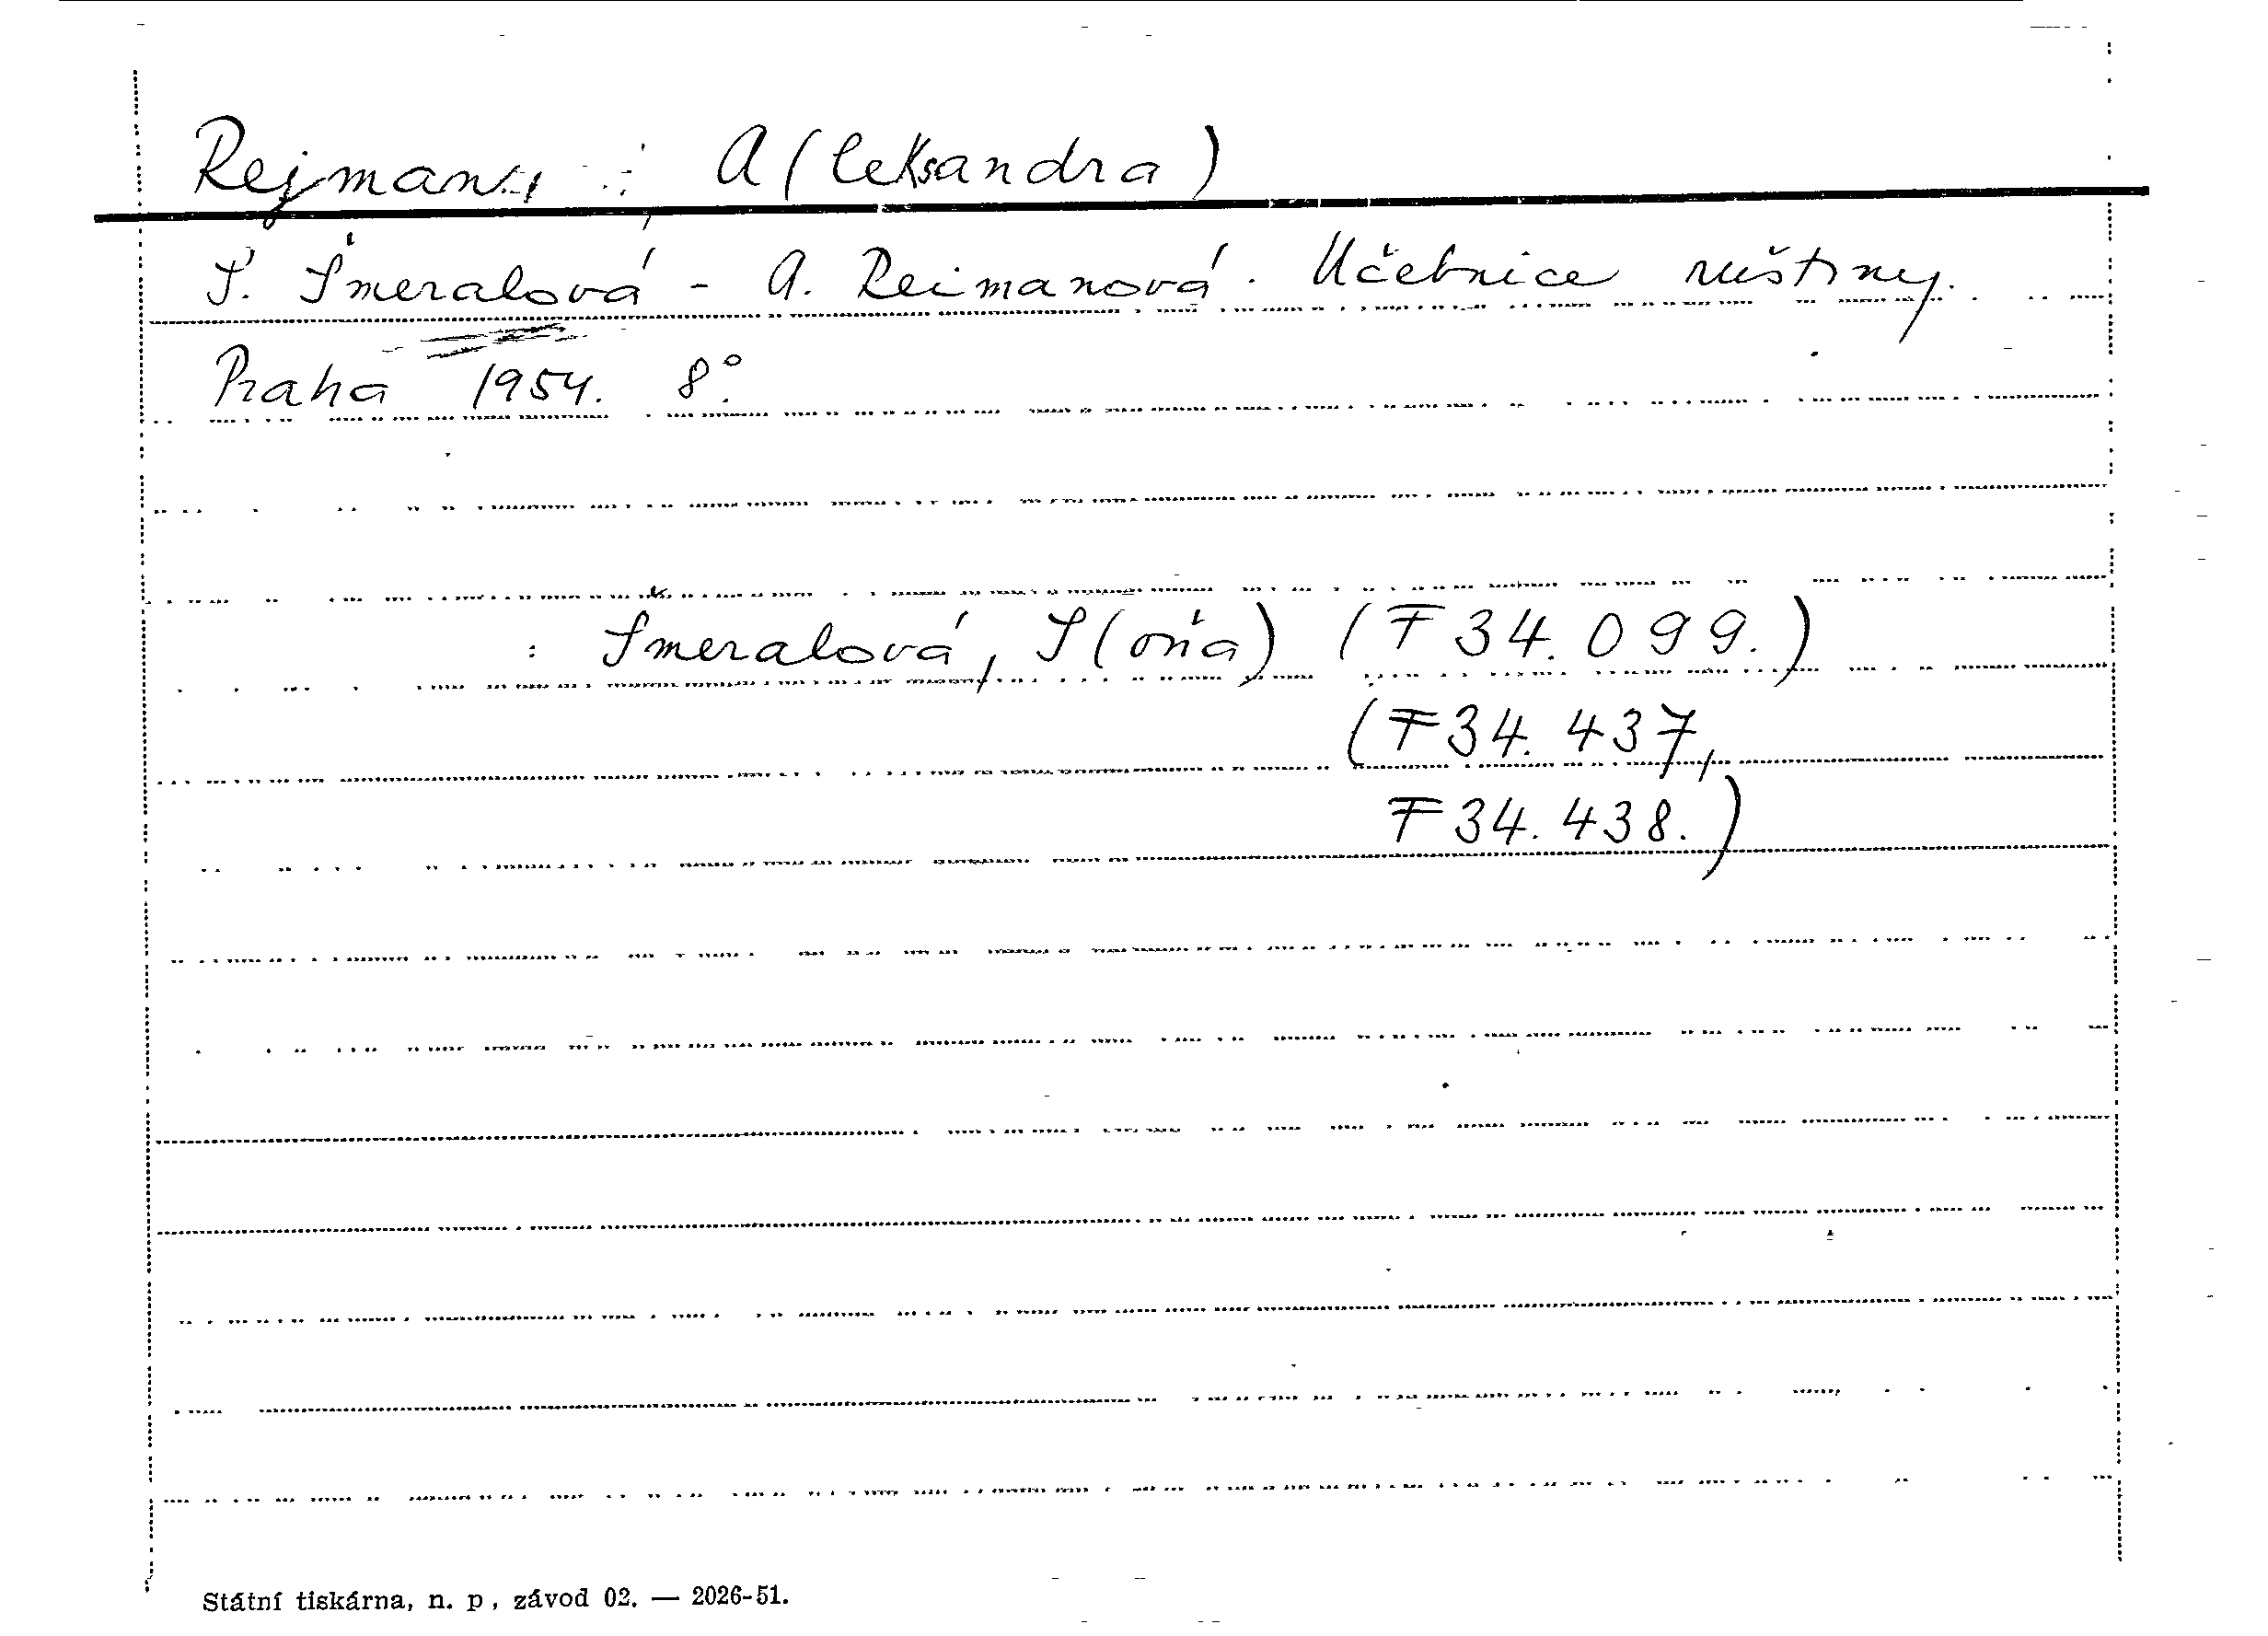 Rejman, A(leksandra)
S. Šmeralová - A. Reimanová. Učebnice ruštiny.
Praha 1954. 8°.
: Šmeralová, S(oňa) (F 34.099.)
(F 34.437,
F 34.438.)
Státní tiskárna, n. p., závod 02. — 2026-51.